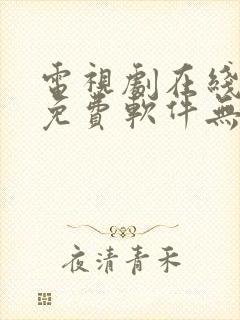 電視劇在綫
免費軟件無
夜清青禾